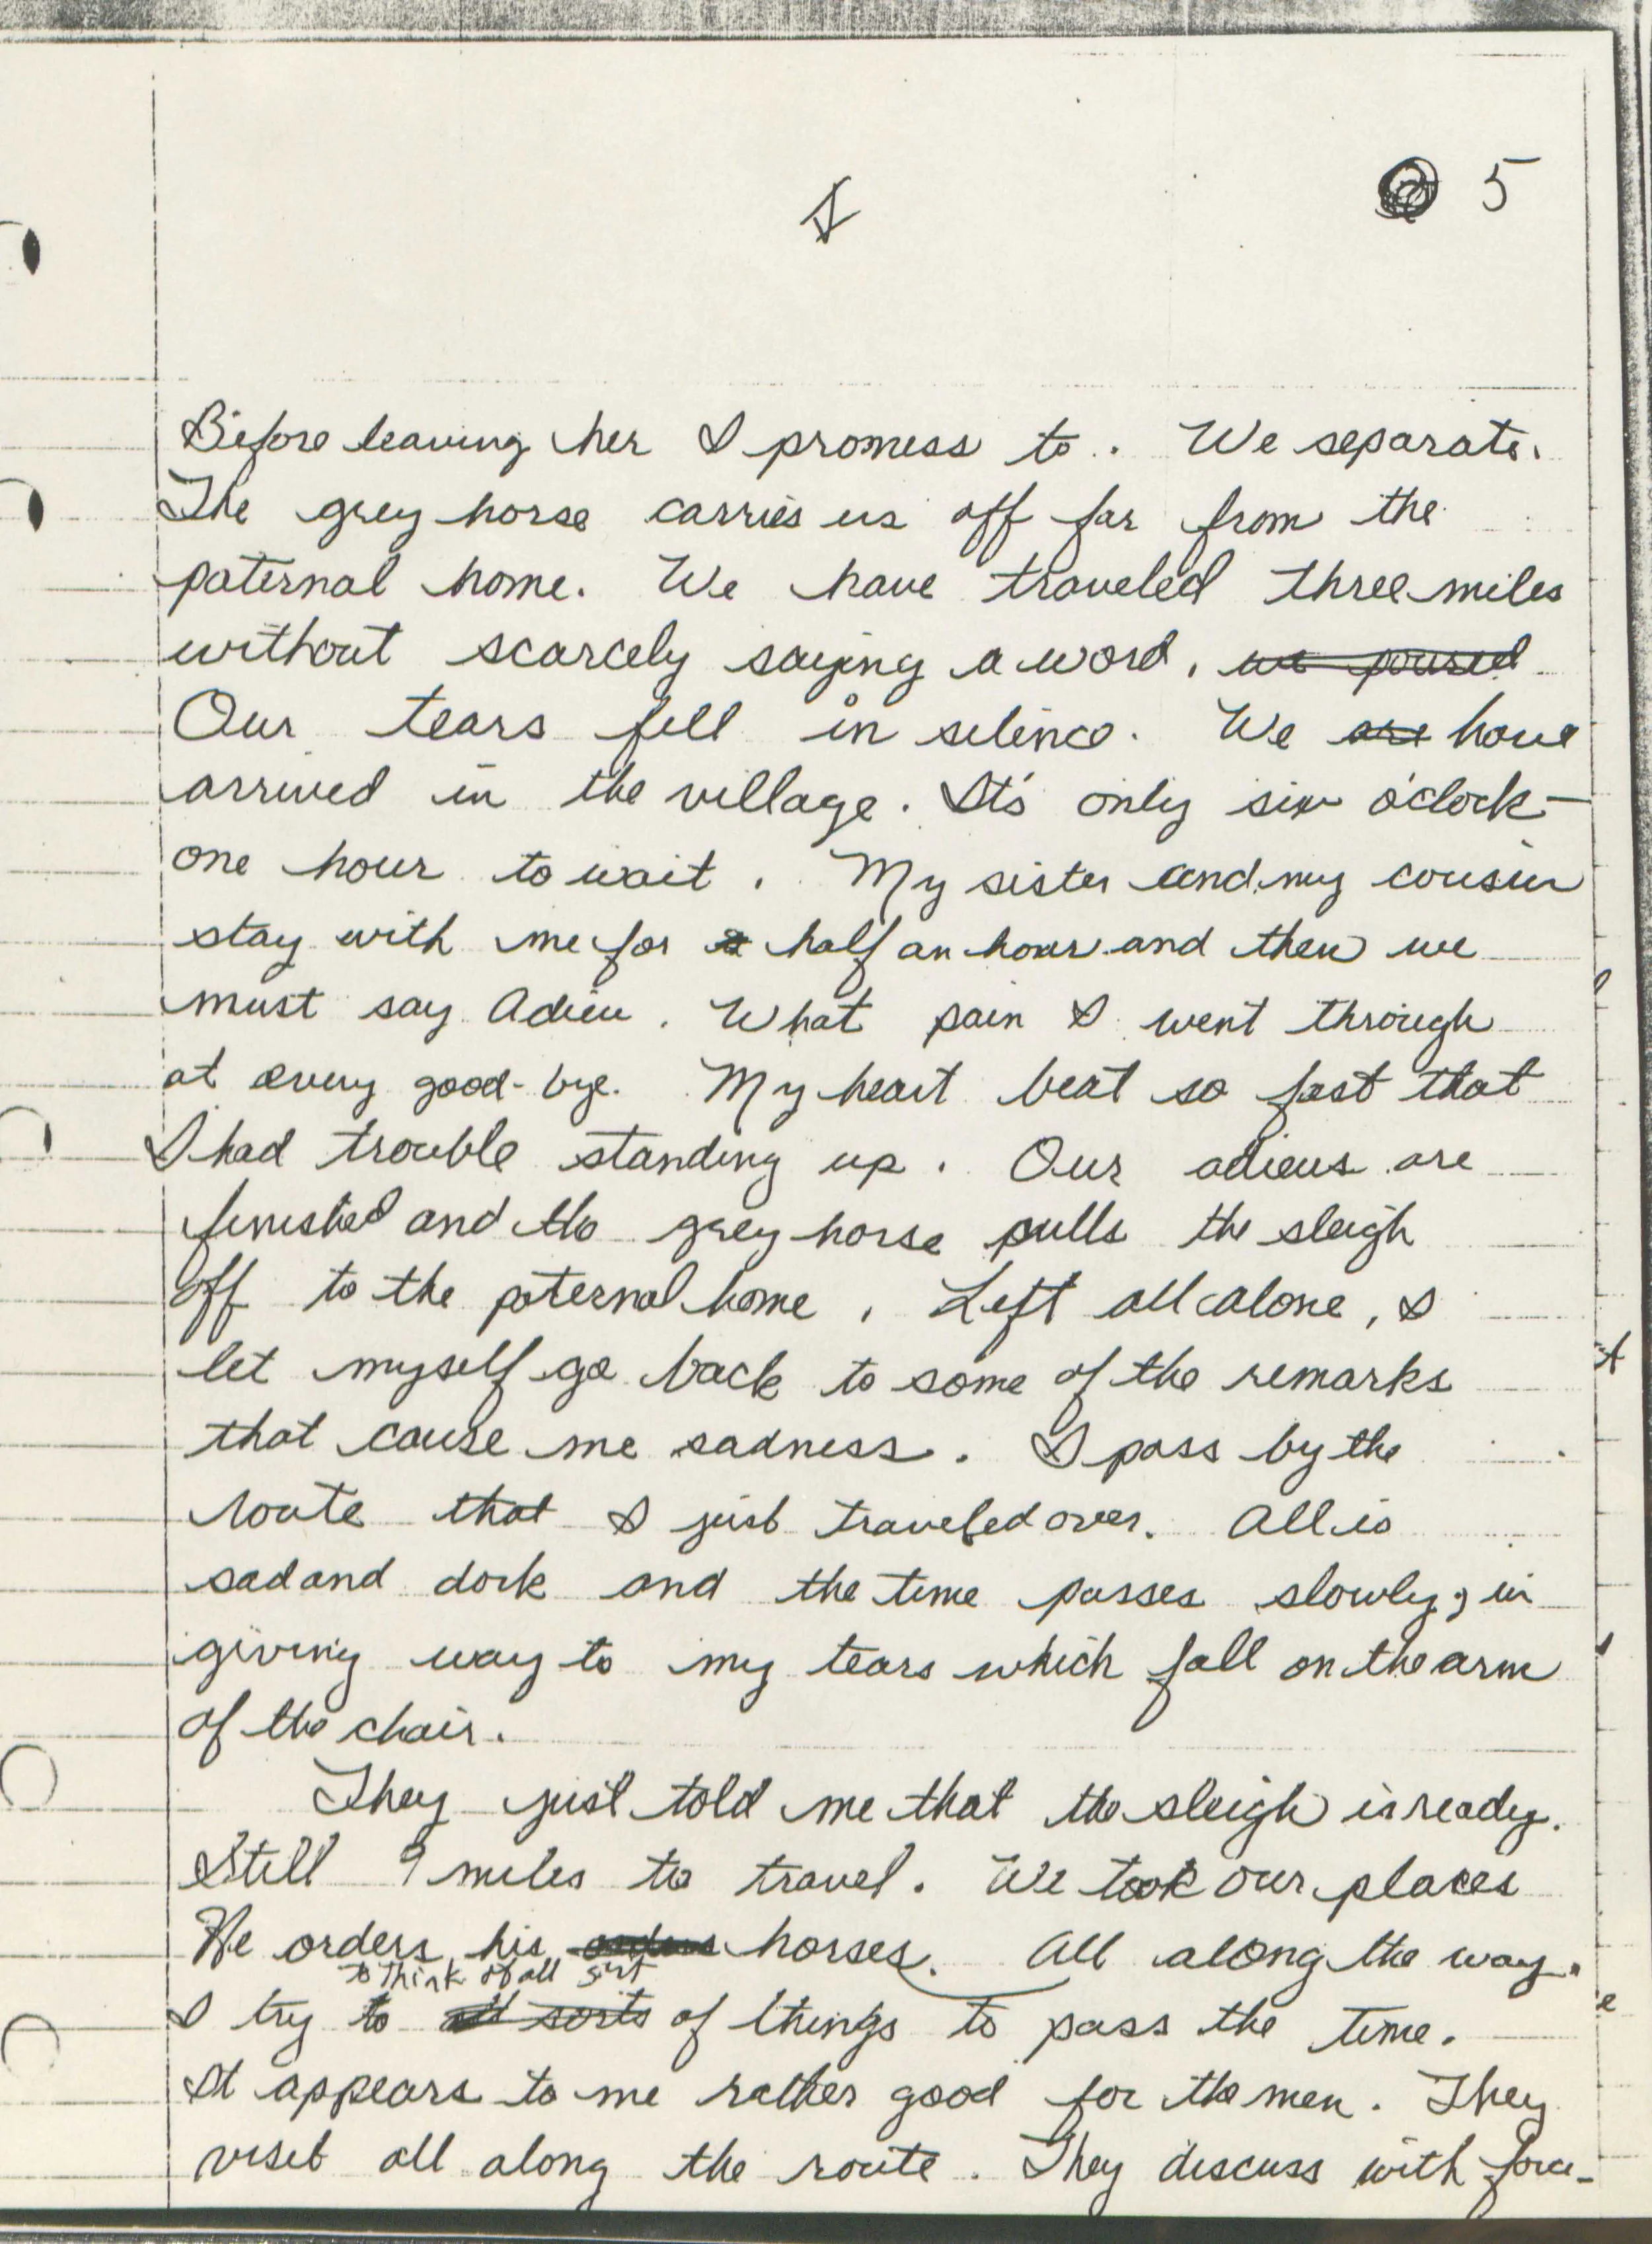 5
Before leaving her I promess to. We separate.
The grey horse carries us off far from the
paternal home. We have traveled three miles
without scarcely saying a word, we poured
Our tears fell in silence. We are have
arrived in the village. It's only six o'clock -
one hour to wait. My sister and my cousin
stay with me for a half an hour and then we
must say Adieu. What pain I went through
at every good-bye. My heart beat so fast that
I had trouble standing up. Our adieus are
finished and the grey horse pulls the sleigh
off to the paternal home. Left all alone, I
let myself go back to some of the remarks
that cause me sadness. I pass by the
route that I just traveled over. All is
sad and dark and the time passes slowly; in
giving way to my tears which fall on the arm
of the chair.
They just told me that the sleigh is ready.
Still 9 miles to travel. We took our places
He orders his horses. All along the way.
to think of all sort
I try to all sorts of things to pass the time.
It appears to me rather good for the men. They
visit all along the route. They discuss with